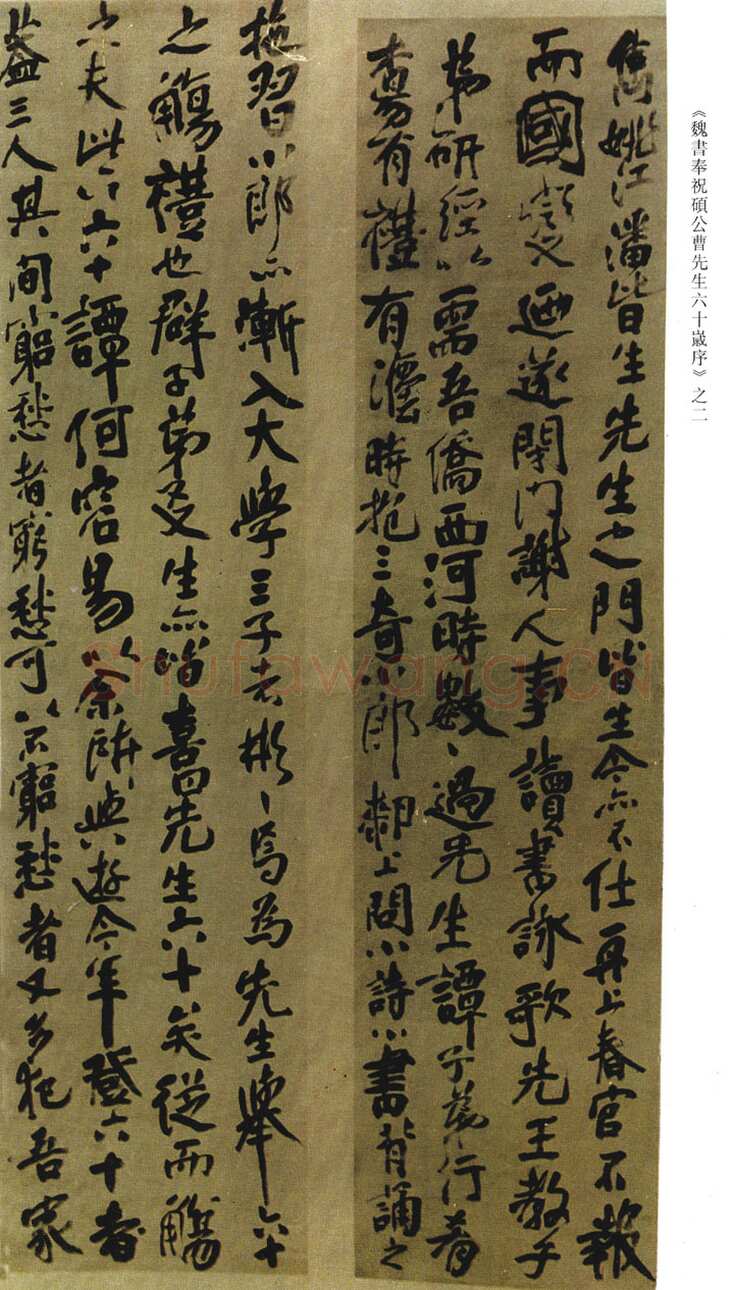 《魏書奉祝碩公曹先生六十歲序》之二
雋姚江潘皆生先生之門皆生今亦不仕再上春官不報
而國變迺遂閉門謝人事讀書詠歌先王教子
弟研經以需吾僑西河時數、過先生譚行肴
有禮有瀍時抱三奇小郎都上問小詩小書背誦之
拖習小郎亦漸入大學三子者彬、焉為先生舉六十
之觴禮也群子弟及生亦皆喜先生六十矣從而觴
六夫此六六十譚何容易以余所與游今年登六十者
蓋三人其間窮愁者窮愁可以不窮愁者又多犯吾家
shufawang.cn